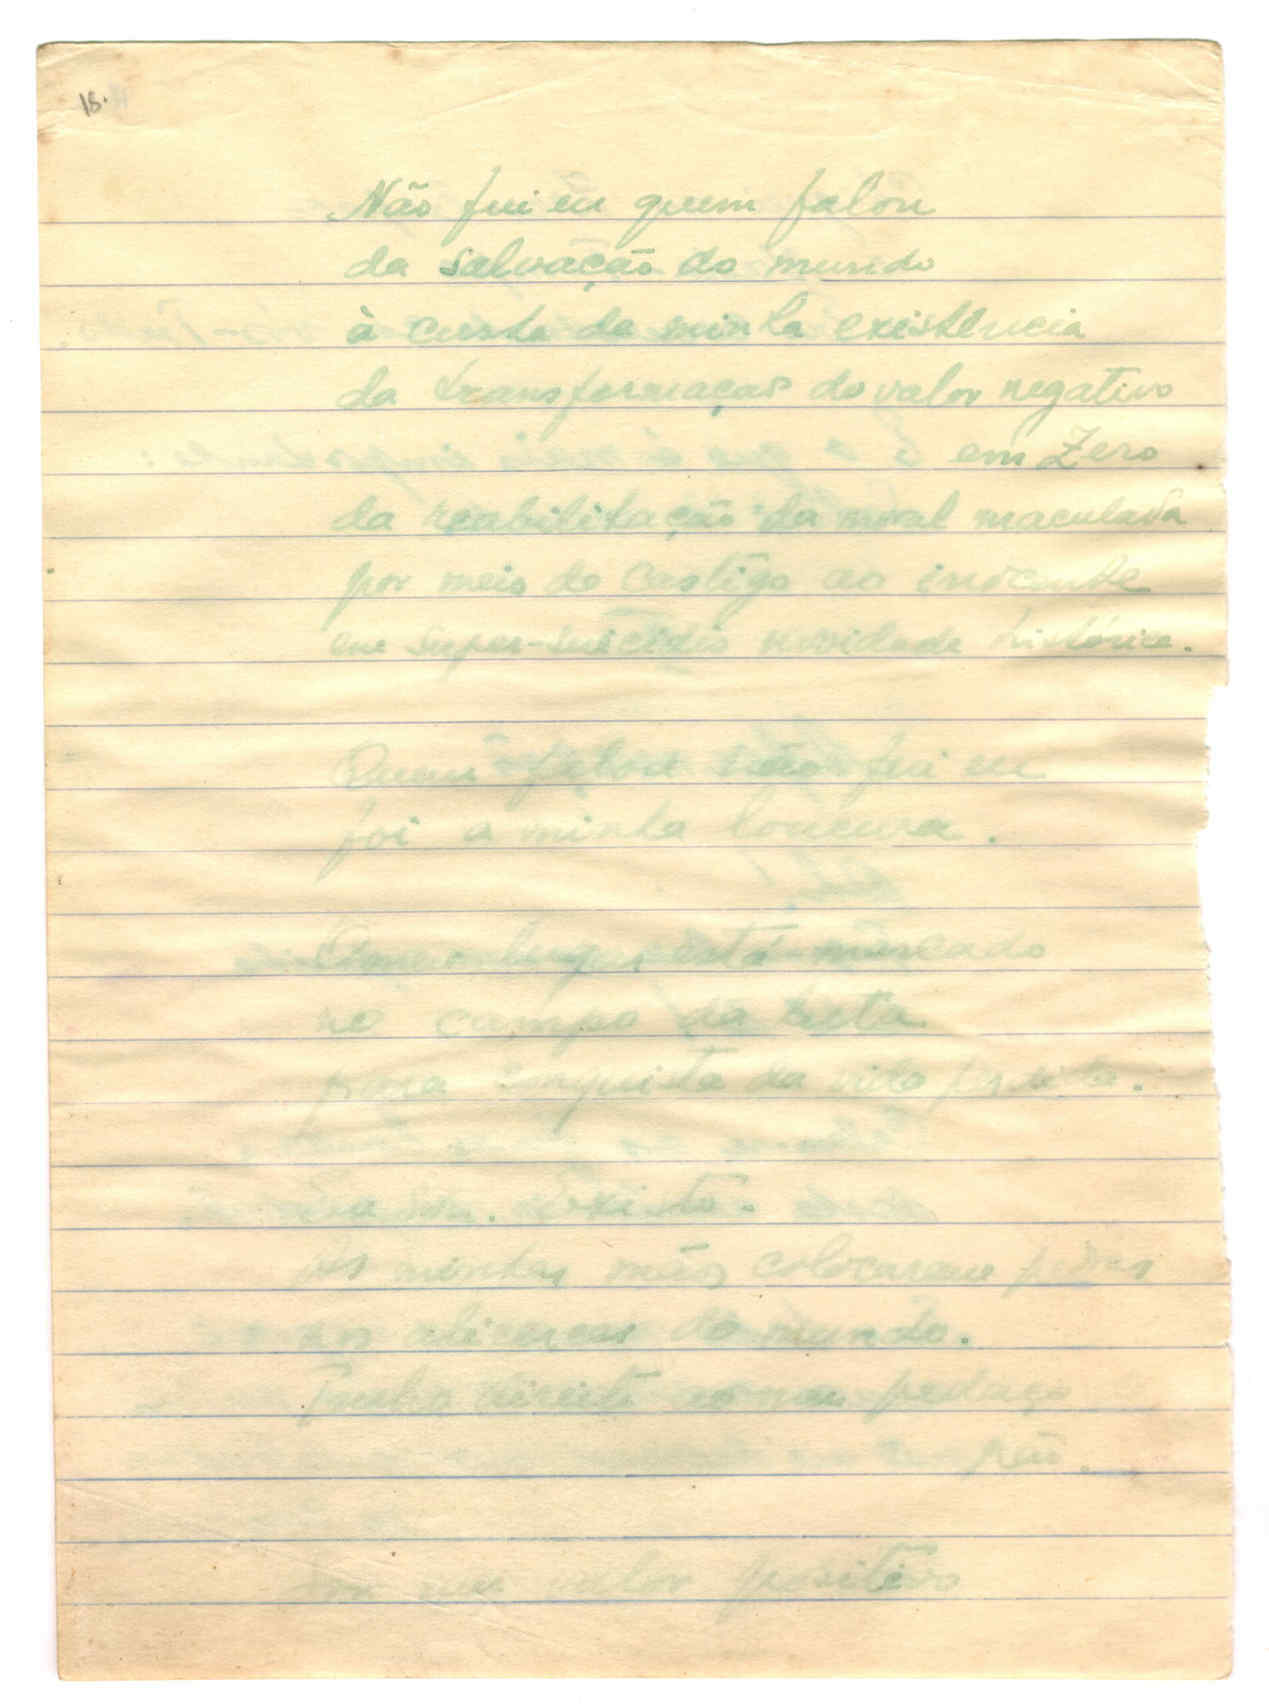 18.
Não fui eu quem falou
da salvação do mundo
à custa de minha existência
da transformação do valor negativo
em Zero
da reabilitação da moral maculada
por meio do castigo ao inocente
em super-suicídio novidade histórica.
Quem falou não fui eu
foi a minha loucura.
O meu lugar está marcado
no campo da luta
para conquista da vida perdida.
Eu sou. Existo.
As minhas mãos colocaram pedras
nos alicerces do mundo.
Tenho direito ao meu pedaço
Sou um valor positivo